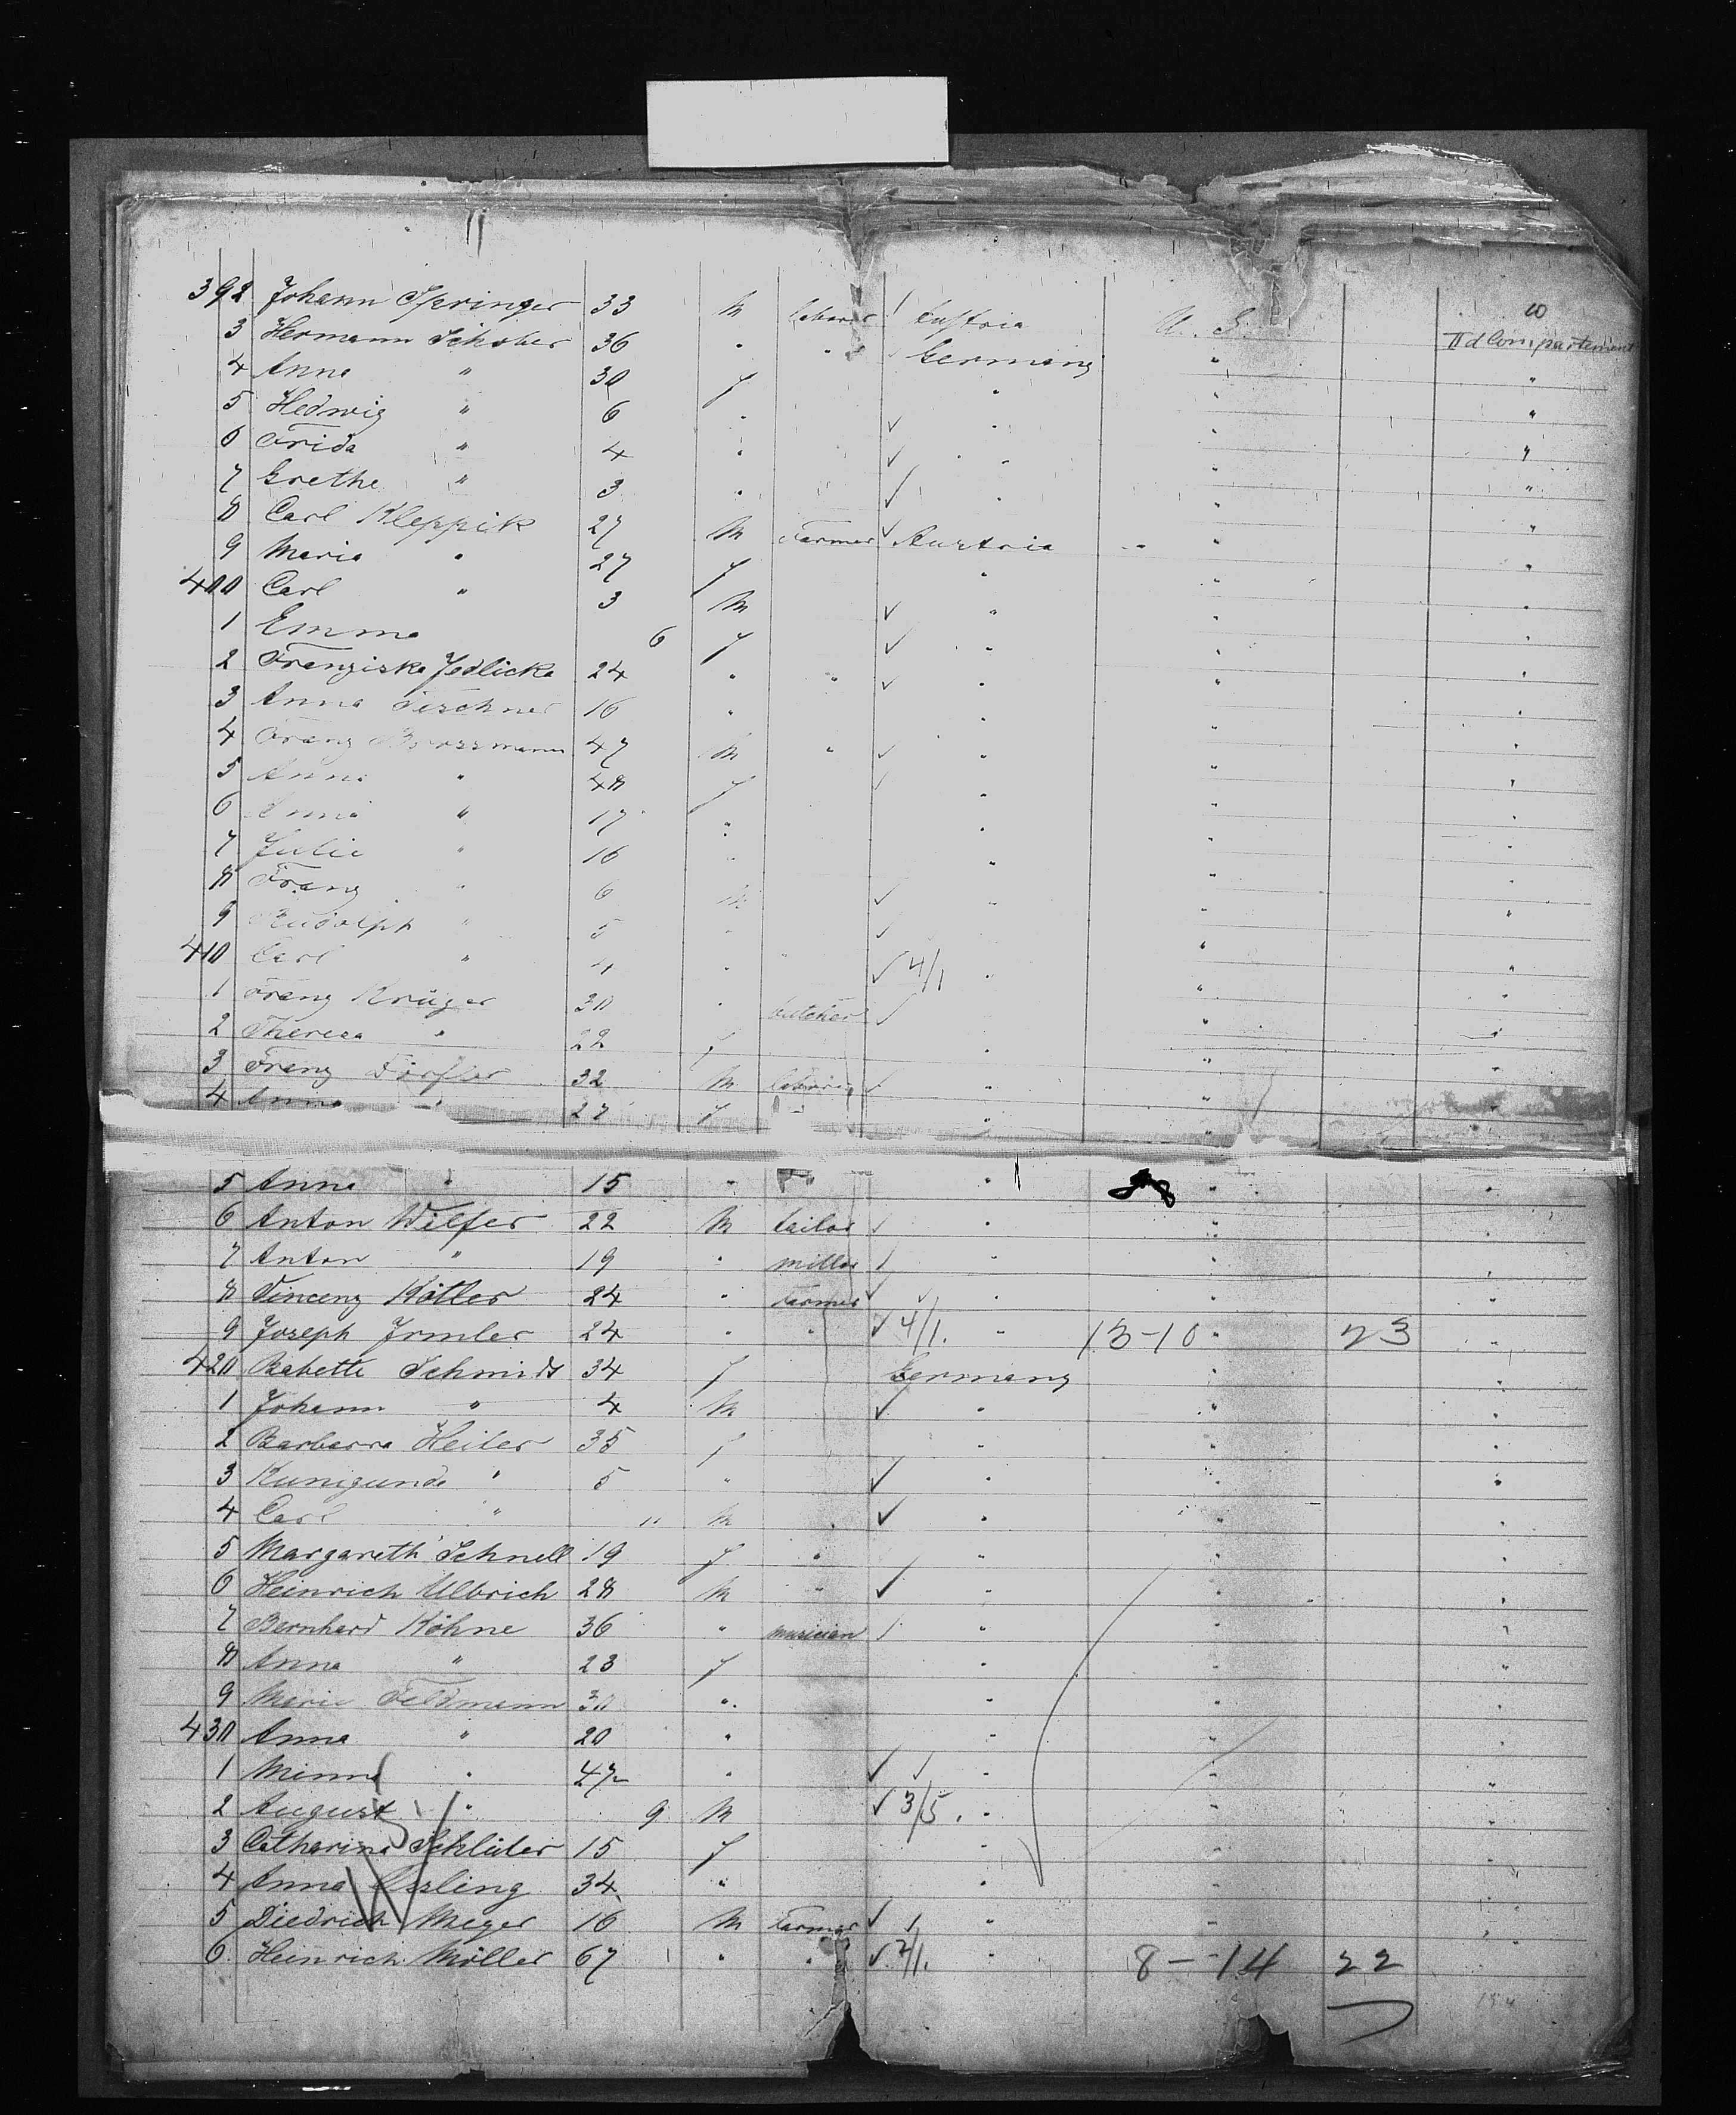 10
392 Johann Springer 33 M laborer ✓ Austria U. S. IId Compartement
3 Hermann Schober 36 " " " Germany " "
4 Anna " 30 f " " "
5 Hedwig " 6 " ✓ " " "
6 Frida " 4 " ✓ " " "
7 Grethe " 3 " ✓ " " "
8 Carl Kleppik 27 M Farmer ✓ Austria " "
9 Maria " 27 f " " "
400 Carl " 3 M ✓ " " "
1 Emma 6 f ✓ " " "
2 Franziska Jedlicka 24 " " ✓ " " "
3 Anna 16 " " " "
4 Franz 47 M " ✓ " " "
5 Anna " 48 f ✓ " " "
6 Anna " 17 " " " "
7 Julie " 16 " " " "
8 Franz " 6 M ✓ " " "
9 Rudolph " 5 " ✓ " "
410 Carl " 4 " ✓ 4/1 " " "
1 Franz Krüger 30 " butcher ✓ " "
2 Theresa " 22 f " " "
3 Franz Dörfler 32 M laborer ✓ " " "
4 Anna " 27 f " " "
5 Anna " 15 " " " "
6 Anton Wilfer 22 M tailor ✓ " "
7 Anton " 19 " miller ✓ " " "
8 Vincenz Kötler 24 " Farmer ✓ " " "
9 Joseph Irmler 24 " " ✓ 4/1. " 13-10 " 23 "
420 Babette Schmidt 34 f Germany " "
1 Johann " 4 M ✓ " " "
2 Barbarra Heiler 35 f " " "
3 Kunigunde " 5 " ✓ " " "
4 Carl " 11 M ✓ " " "
5 Margareth Schnell 19 f " " " "
6 Heinrich Ulbrich 28 M " ✓ " " "
7 Bernhard Köhne 36 " musician ✓ " " "
8 Anna " 23 f " " "
9 Marie Feldmann 30 " " " "
430 Anna " 20 " " "
1 Minna " 47 " ✓ " " "
2 August " 9 M ✓ 3/5. " " "
3 Catharina Schlüter 15 f " " "
4 Anna 34 " " "
5 Diedrich Meyer 16 M Farmer ✓ " " "
6. Heinrich Möller 67 " " ✓ 2/1. " 8-14 22